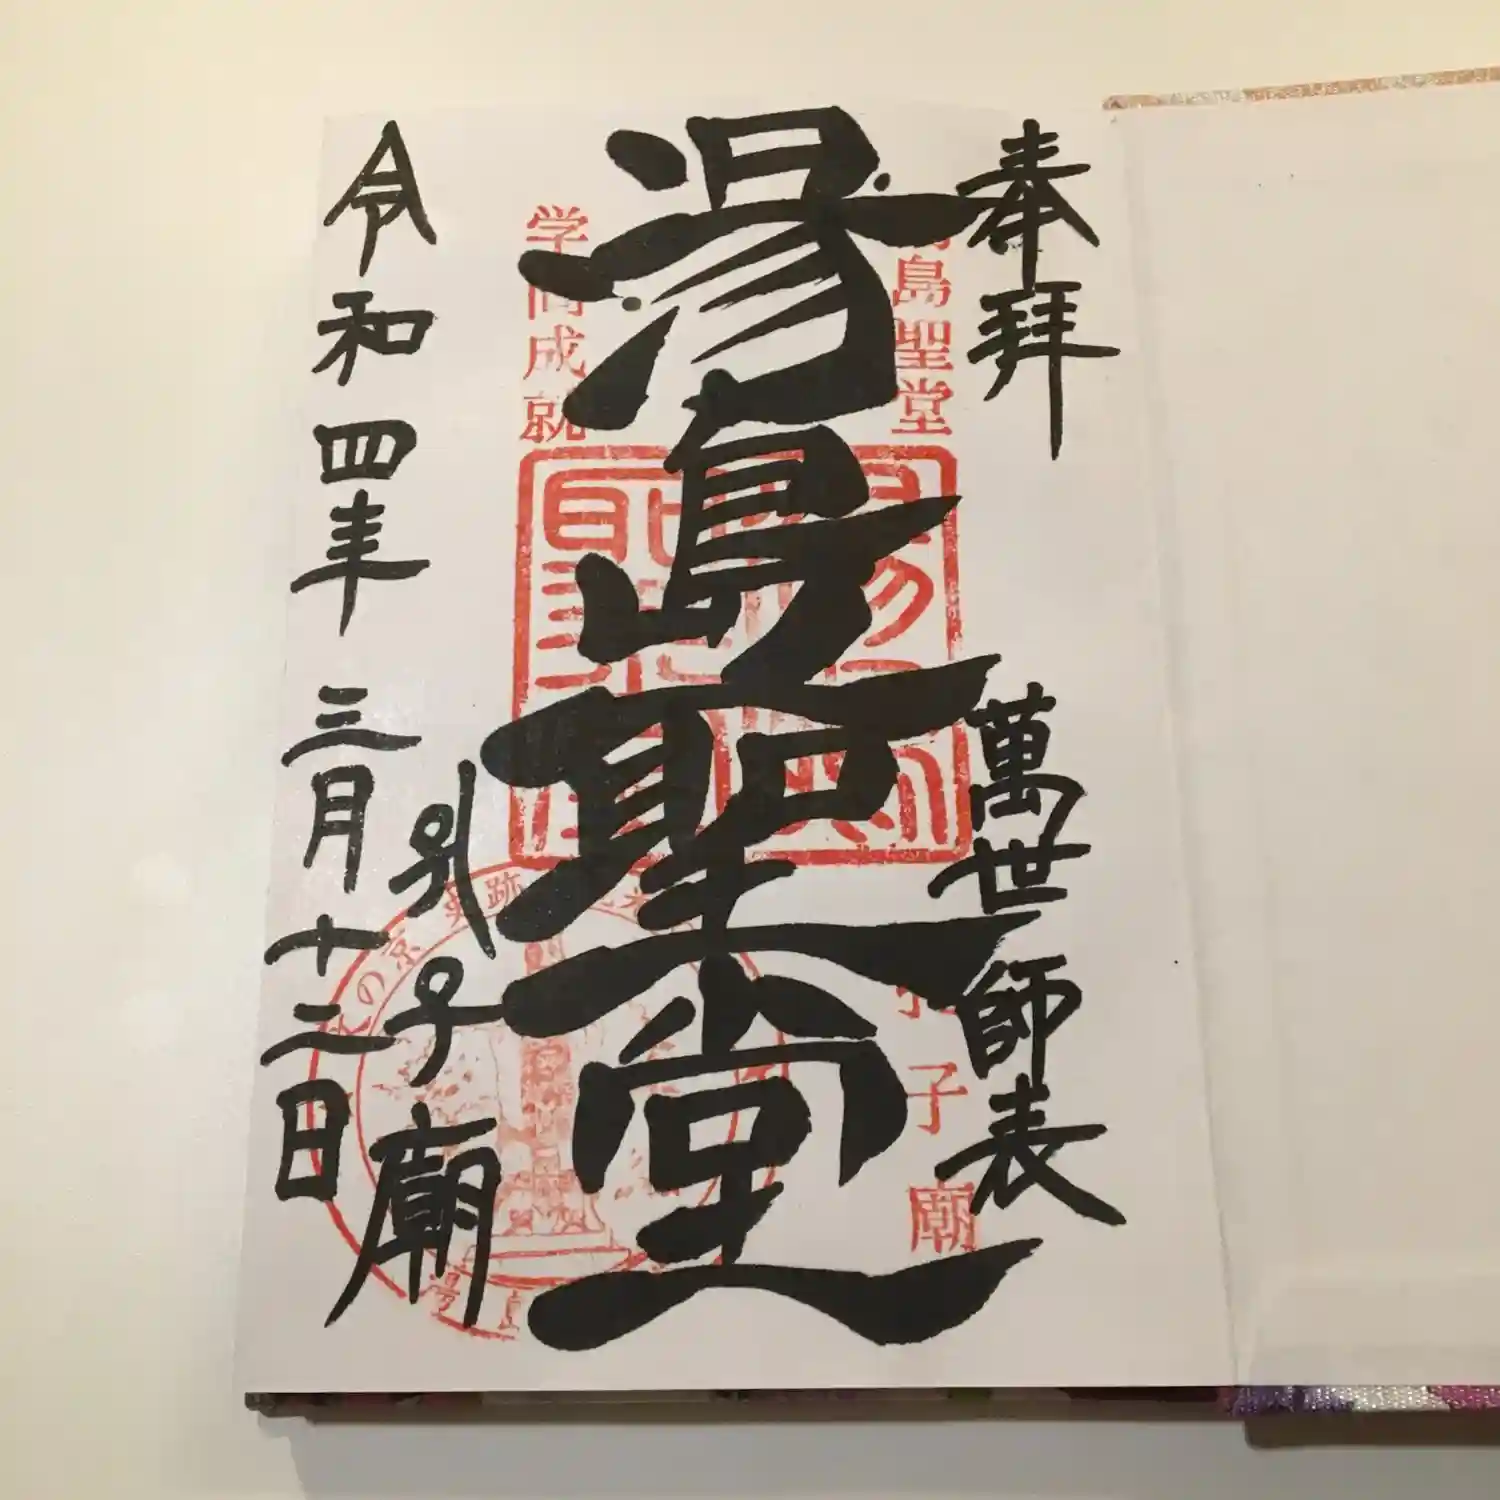 奉拝
萬世師表
湯島聖堂
孔子廟
令和四年三月十二日
島聖堂
子廟
学問成就